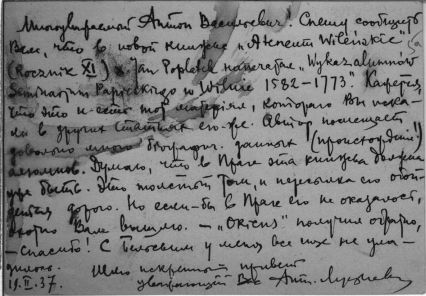 Многоуважаемый Антон Васильевич! Спешу сообщить
Вам, что в новой книжке „Ateneum Wileńskie"
(Rocznik XI) Jan Poplatek напечатал „Wykaz alumnów
Seminarjum Papieskiego w Wilnie 1582–1773". Кажется,
что это и есть тот матерьял, котораго Вы иска-
ли в других статьях его-же. Автор помещает
довольно много биограф. данных
алюмнов. Думаю, что в Праге эта книжка должна
уже быть. Это толстый том, и пересылка его обой-
дется дорого. Но если-бы в Праге его не оказалось,
Вам вышлю. — „Oriens" получил обратно,
— спасибо! С у меня все еще не ула-
дилось. Шлю искренний привет
19.II.37. уважающий Вас Ант.